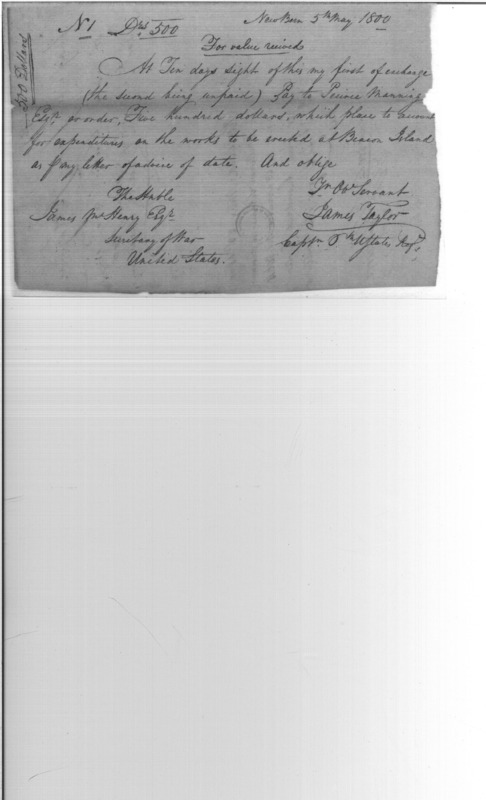 500 Dollars
N1 Drs 500 New Bern 5th May 1800
For value recived
At Ten days sight of this my first of exchange
(the second being unpaid) Pay to Manning
Esqr. or order, Five hundred dollars, which place to
for expenditures on the works to be erected at Beacon Island
as pr my letter of advice of date. And oblige
Yr Obt Servant
The Honble
James McHenry Esqr. James Taylor
Secretary of War Captn
United States.